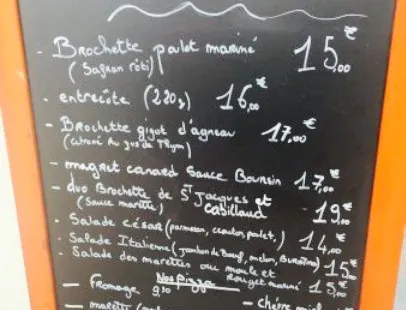 - Brochette poulet mariné 15,00€
(Safran rôti)
- entrecôte (220g) 16,00€
- Brochette gigot d'agneau 17,00€
(citroné au jus de Thym)
- magret canard Sauce Boursin 17,00€
- duo Brochette de St Jacques et Cabillaud 19€
(Sauce marette)
- Salade César (parmesan, crouton, poulet,) 14,00€
- Salade Italienne (jambon de Boeuf, melon, Burratina) 15€
- Salade des marettes ou moule et Rouget mariné 15,00€
Nos Pizza
- fromage 9,50
- chèvre miel